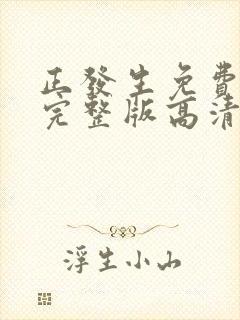 正發生免費
完整版高清
浮生小山